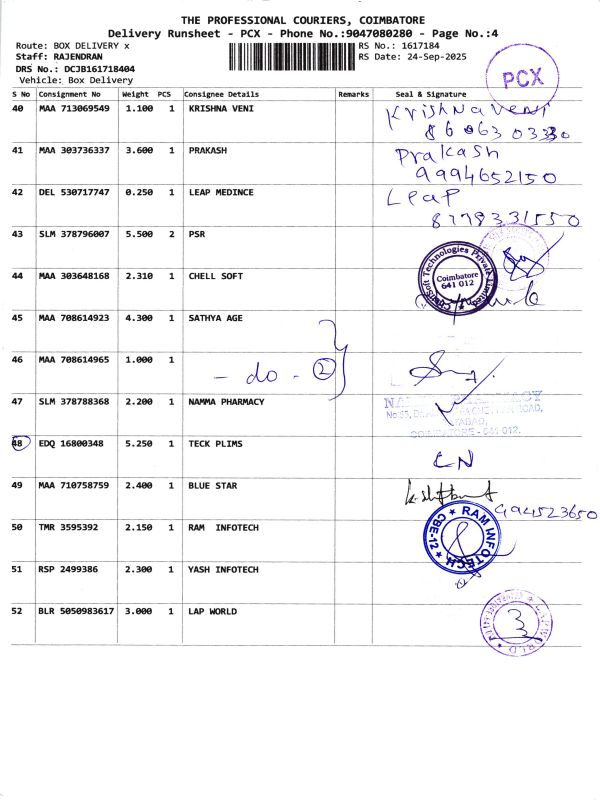 THE PROFESSIONAL COURIERS, COIMBATORE
Delivery Runsheet - PCX - Phone No.:9047080280 - Page No.:4
Route: BOX DELIVERY x RS No.: 1617184
Staff: RAJENDRAN RS Date: 24-Sep-2025
DRS No.: DCJB161718404
Vehicle: Box Delivery
PCX
S No Consignment No Weight PCS Consignee Details Remarks Seal & Signature
40 MAA 713069549 1.100 1 KRISHNA VENI Krishnaveni
86063 03330
41 MAA 303736337 3.600 1 PRAKASH Prakash
9994652150
42 DEL 530717747 0.250 1 LEAP MEDINCE Leap
8778331550
43 SLM 378796007 5.500 2 PSR
44 MAA 303648168 2.310 1 CHELL SOFT
Technologies Private Limited
Coimbatore
641 012
45 MAA 708614923 4.300 1 SATHYA AGE
46 MAA 708614965 1.000 1
- do - 2
47 SLM 378788368 2.200 1 NAMMA PHARMACY
COIMBATORE - 641 012.
48 EDQ 16800348 5.250 1 TECK PLIMS
LN
49 MAA 710758759 2.400 1 BLUE STAR
994523650
50 TMR 3595392 2.150 1 RAM INFOTECH
RAM INFOTECH CBE-12
51 RSP 2499386 2.300 1 YASH INFOTECH
52 BLR 5050983617 3.000 1 LAP WORLD
LAP WORLD